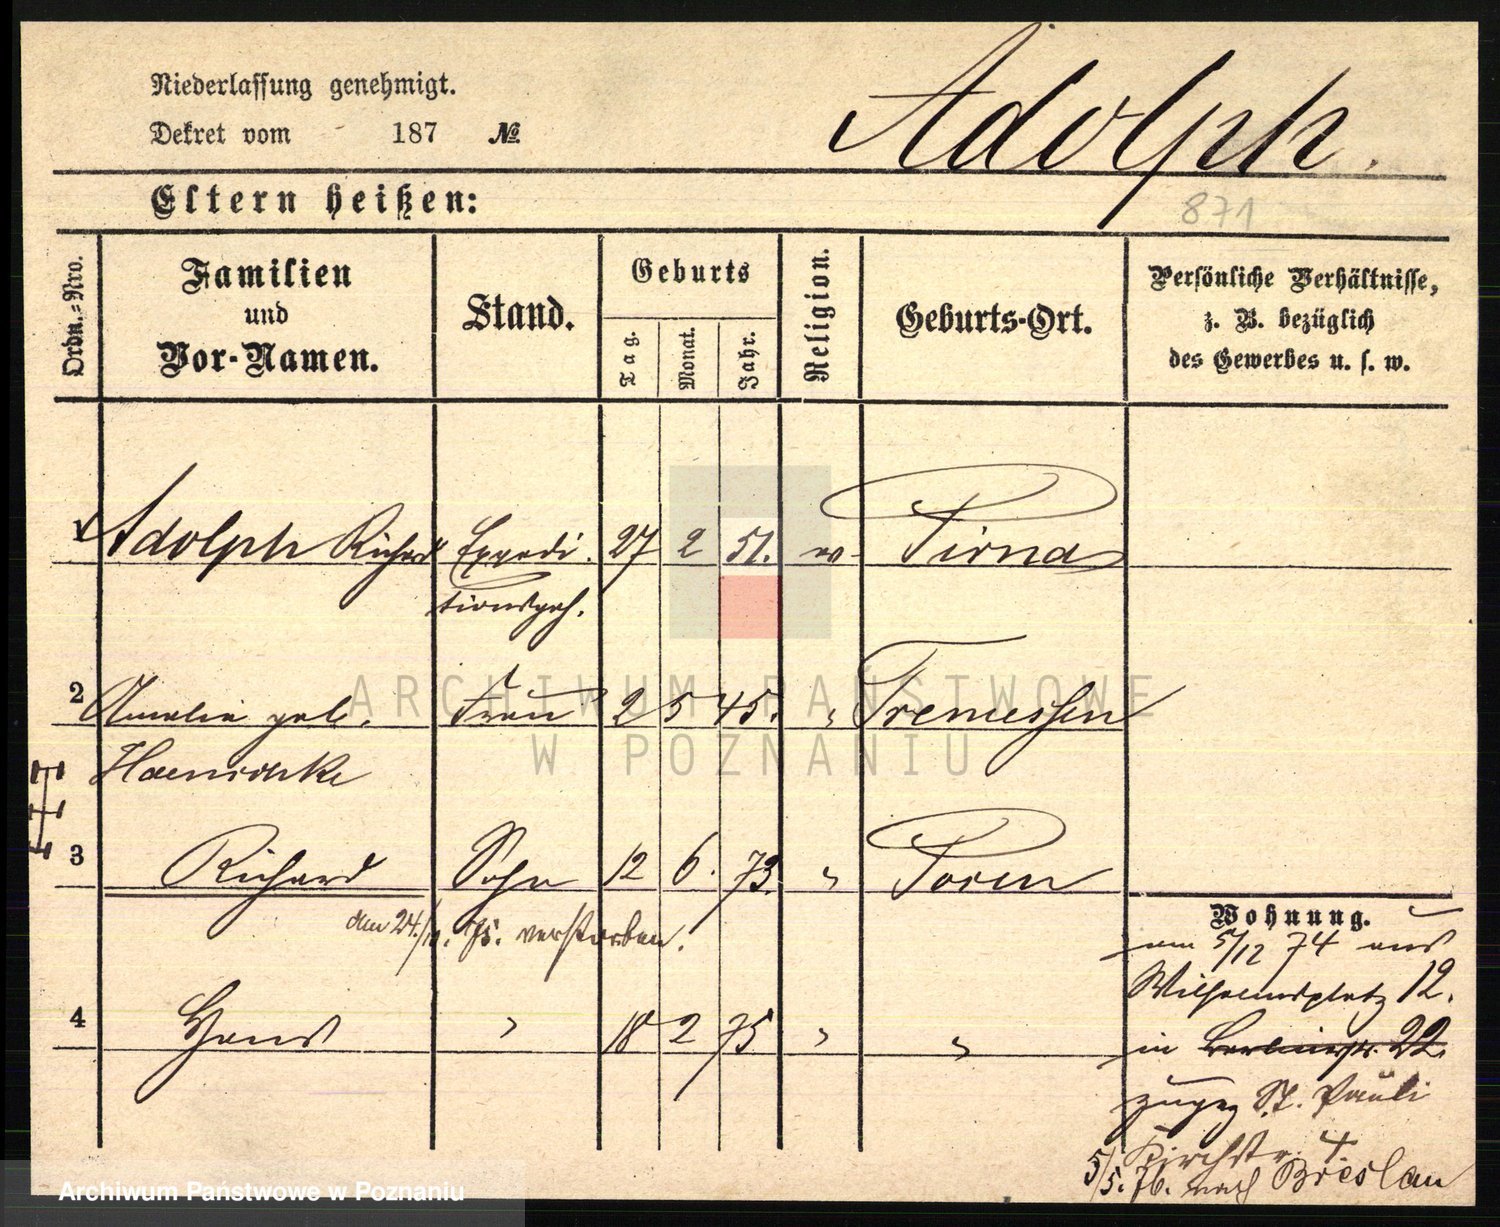 Niederlassung genehmigt.
Dekret vom 187 №
Adolph.
Eltern heißen:
871
Ordn.-Nro.
Familien
und
Vor-Namen.
Stand.
Geburts
Tag.
Monat.
Jahr.
Religion.
Geburts-Ort.
Persönliche Verhältnisse,
z. B. bezüglich
des Gewerbes u. s. w.
1 Adolph Richard Expedi- 27 2 51. ev- Pirna
tionsgeh.
2 Amalie geb. Frau 2 5 45. " Tremessen
Haenschke
3 Richard Sohn 12 6. 73. " Posen
den 24./11. 75. verstorben.
4 Hans " 18 2 75 " "
Wohnung.
am 5/12 74 aus
Wilhelmsplatz 12.
in Berlinerstr. 22.
zugez St. Pauli
Kirchstr. 4.
5/5. 76. nach Breslau
ARCHIWUM PAŃSTWOWE
W POZNANIU
Archiwum Państwowe w Poznaniu